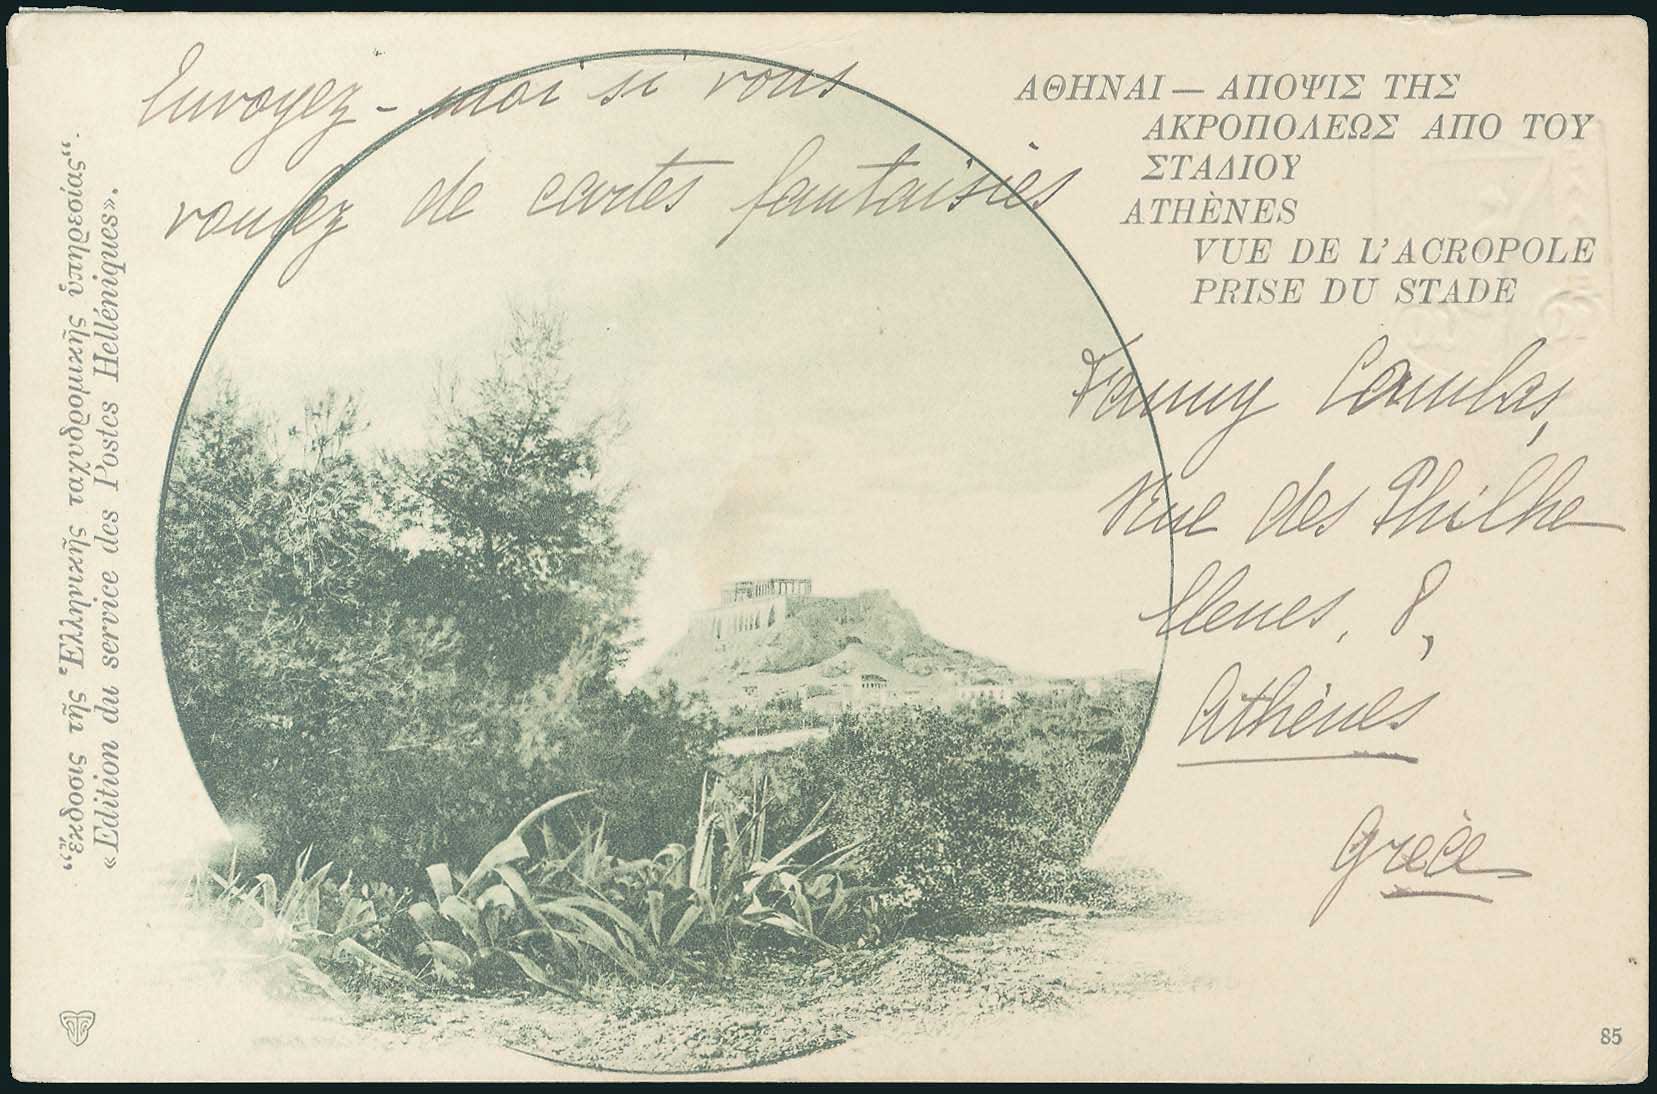 Envoyez-moi si vous
voulez de cartes fantaisies
ΑΘΗΝΑΙ — ΑΠΟΨΙΣ ΤΗΣ
ΑΚΡΟΠΟΛΕΩΣ ΑΠΟ ΤΟΥ
ΣΤΑΔΙΟΥ
ATHÈNES
VUE DE L'ACROPOLE
PRISE DU STADE
Fanny Cambas,
Rue des Philhe
llenes, 8,
Athènes
Grèce
„Ἔκδοσις τῆς Ἑλληνικῆς ταχυδρομικῆς ὑπηρεσίας"
«Edition du service des Postes Helléniques».
85